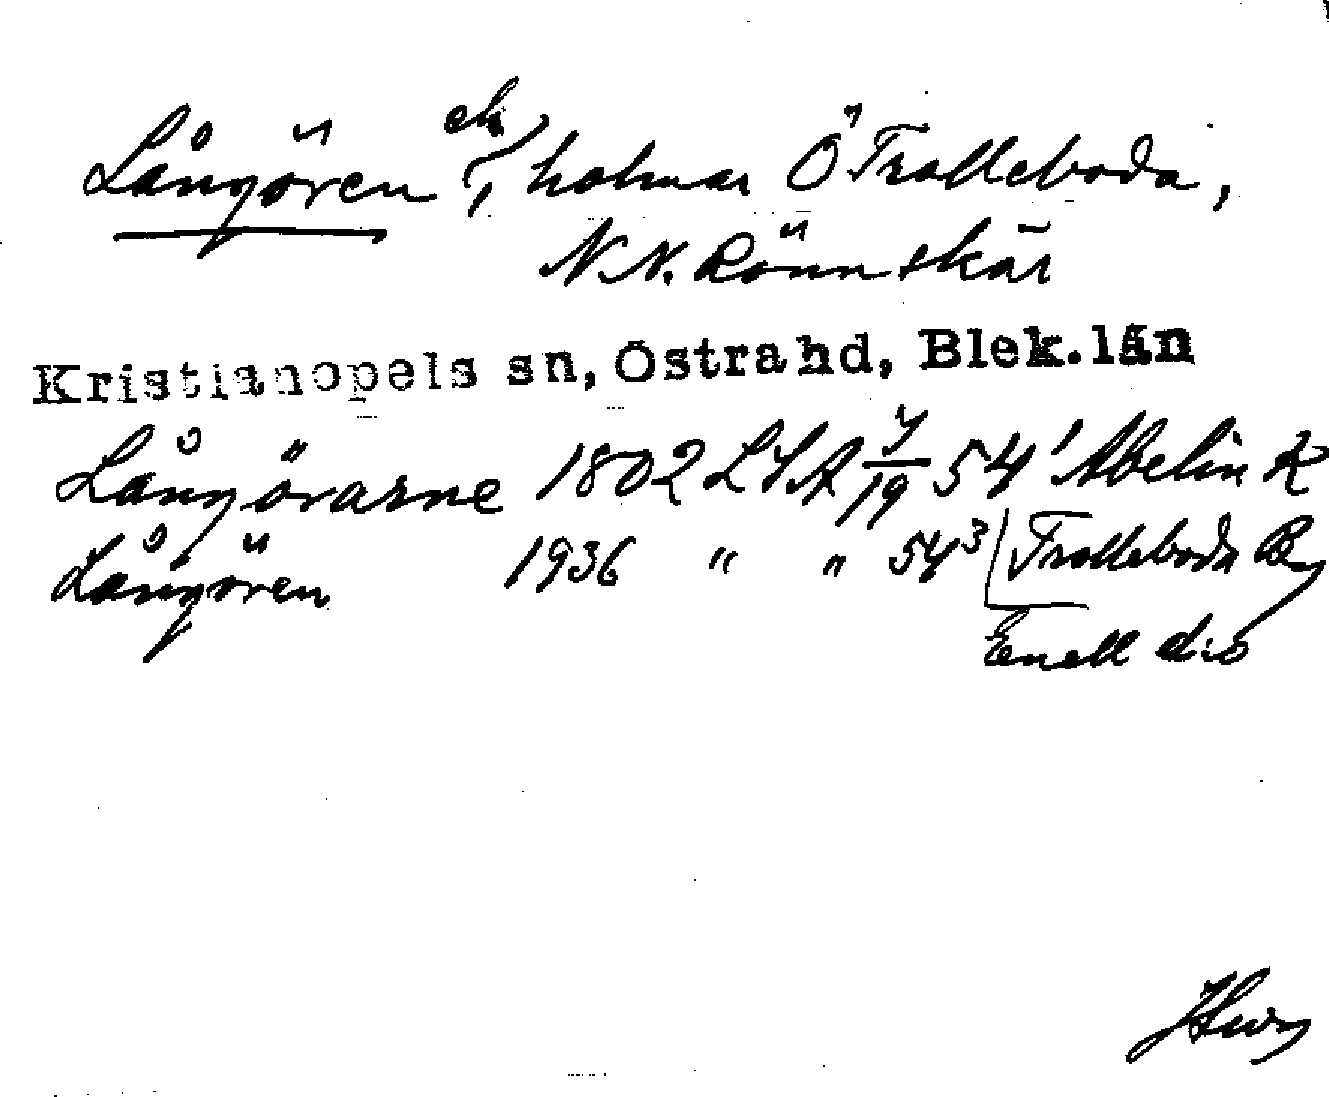 Långören ek, holmar Ö Trolleboda,
N.N. Rönnskär
Kristianopels sn, Östra hd, Blek. län
Långörarne 1802 LSA 7/19 54¹ Abelin K
Långören 1936 " " 54³ Trolleboda By
Enell d:o